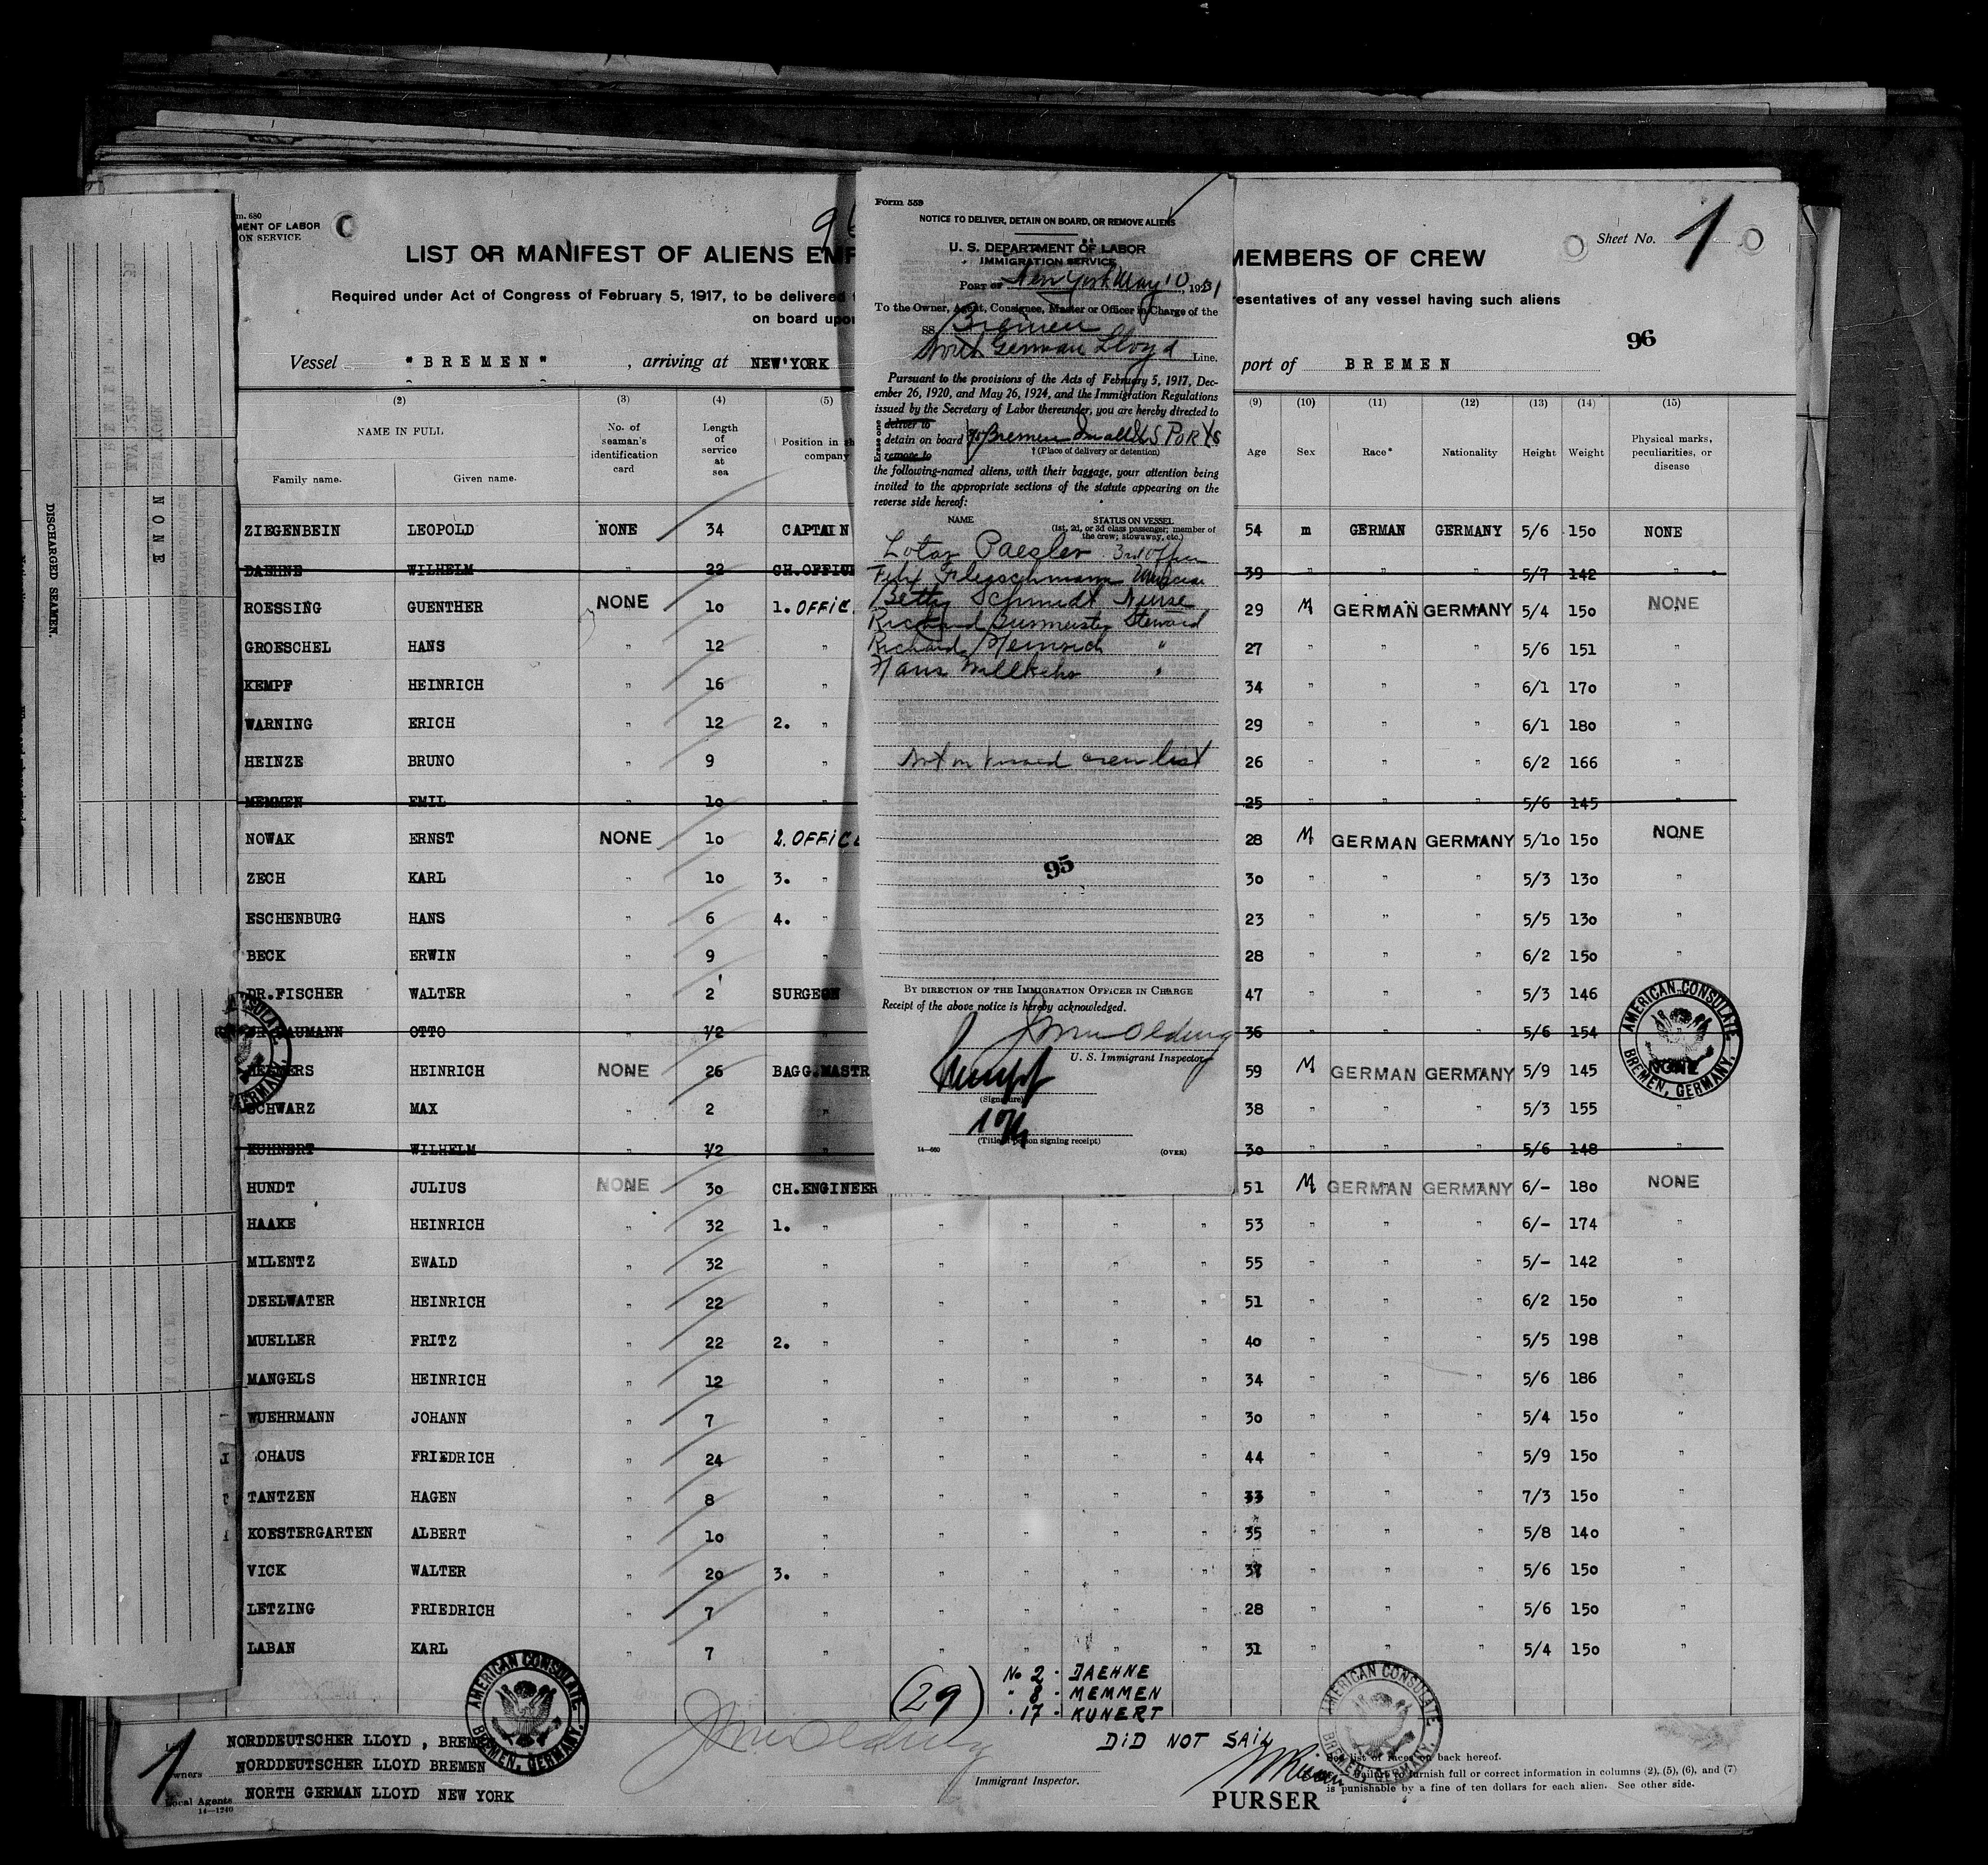 m. 680
MENT OF LABOR
ON SERVICE
LIST OR MANIFEST OF ALIENS EMP
MEMBERS OF CREW
Sheet No. 1
Required under Act of Congress of February 5, 1917, to be delivered
resentatives of any vessel having such aliens
on board upon
96
Vessel "BREMEN", arriving at NEW YORK
port of BREMEN
(2) (3) (4) (5) (9) (10) (11) (12) (13) (14) (15)
NAME IN FULL
Family name. Given name.
No. of seaman's identification card
Length of service at sea
Position in
company
Age Sex Race* Nationality Height Weight
Physical marks, peculiarities, or disease
ZIEGENBEIN LEOPOLD NONE 34 CAPTAIN 54 m GERMAN GERMANY 5/6 150 NONE
DAEHNE WILHELM " 22 CH.OFFICE 39 " " " 5/7 142 "
ROESSING GUENTHER NONE 10 1. OFFIC. 29 M GERMAN GERMANY 5/4 150 NONE
GROESCHEL HANS " 12 " 27 " " " 5/6 151 "
KEMPF HEINRICH " 16 " 34 " " " 6/1 170 "
WARNING ERICH " 12 2. " 29 " " " 6/1 180 "
HEINZE BRUNO " 9 " 26 " " " 6/2 166 "
MEMMEN EMIL " 10 " 25 " " " 5/6 145 "
NOWAK ERNST NONE 10 2. OFFICE 28 M GERMAN GERMANY 5/10 150 NONE
ZECH KARL " 10 3. " 30 " " " 5/3 130 "
ESCHENBURG HANS " 6 4. " 23 " " " 5/5 130 "
BECK ERWIN " 9 28 " " " 6/2 150 "
DR.FISCHER WALTER " 2 SURGEON 47 " " " 5/3 146
AUMANN OTTO " 1/2 " 36 " " " 5/6 154 "
HEINRICH NONE 26 BAGG.MASTR 59 M GERMAN GERMANY 5/9 145 NONE
SCHWARZ MAX " 2 " 38 " " " 5/3 155 "
KUHNERT WILHELM " 1/2 " 30 " " " 5/6 148 "
HUNDT JULIUS NONE 30 CH.ENGINEER 51 M GERMAN GERMANY 6/- 180 NONE
HAAKE HEINRICH " 32 1. " " " " " 53 " " " 6/- 174 "
MILENTZ EWALD " 32 " " " " " 55 " " " 5/- 142 "
DEELWATER HEINRICH " 22 " " " " " 51 " " " 6/2 150 "
MUELLER FRITZ " 22 2. " " " " " 40 " " " 5/5 198 "
MANGELS HEINRICH " 12 " " " " " 34 " " " 5/6 186 "
WUEHRMANN JOHANN " 7 " " " " " 30 " " " 5/4 150 "
OHAUS FRIEDRICH " 24 " " " " " 44 " " " 5/9 150 "
TANTZEN HAGEN " 8 " " " " " 33 " " " 7/3 150 "
KOESTERGARTEN ALBERT " 10 " " " " " 35 " " " 5/8 140 "
VICK WALTER " 20 3. " " " " " " " " 5/6 150 "
LETZING FRIEDRICH " 7 " " " " " 28 " " " 5/6 150 "
LABAN KARL " 7 " " " " " 31 " " " 5/4 150 "
(29)
No 2 - DAEHNE
" 8 - MEMMEN
" 17 - KUNERT
DID NOT SAIL
1
NORDDEUTSCHER LLOYD , BREMEN
wners NORDDEUTSCHER LLOYD BREMEN
Local Agents NORTH GERMAN LLOYD NEW YORK
14—1240
Immigrant Inspector.
PURSER
See list of races on back hereof.
Failure to furnish full or correct information in columns (2), (5), (6), and (7)
is punishable by a fine of ten dollars for each alien. See other side.
AMERICAN CONSULATE
BREMEN, GERMANY.
AMERICAN CONSULATE
BREMEN, GERMANY.
AMERICAN CONSULATE
BREMEN, GERMANY.
Form 559
NOTICE TO DELIVER, DETAIN ON BOARD, OR REMOVE ALIENS
U. S. DEPARTMENT OF LABOR
IMMIGRATION SERVICE
PORT OF New York May 10, 1931
To the Owner, Agent, Consignee, Master or Officer in Charge of the
SS. Bremen
North German Lloyd Line.
Pursuant to the provisions of the Acts of February 5, 1917, Dec-
ember 26, 1920, and May 26, 1924, and the Immigration Regulations
issued by the Secretary of Labor thereunder, you are hereby directed to
Erase one
deliver to
detain on board Bremen in all U S PORTS
remove to
† (Place of delivery or detention)
the following-named aliens, with their baggage, your attention being
invited to the appropriate sections of the statute appearing on the
reverse side hereof:
NAME STATUS ON VESSEL
(1st, 2d, or 3d class passenger; member of
the crew; stowaway, etc.)
Lotar Paesler 3rd Officer
Felix Fleischmann Musician
Betty Schmidt Nurse
Richard Burmeister Steward
Richard Heinrich "
Hans "
Not on visaed crew list
95
BY DIRECTION OF THE IMMIGRATION OFFICER IN CHARGE
Receipt of the above notice is hereby acknowledged.
U. S. Immigrant Inspector
(Signature)
(Title of person signing receipt)
14—680
(OVER)
DISCHARGED SEAMEN.
NONE